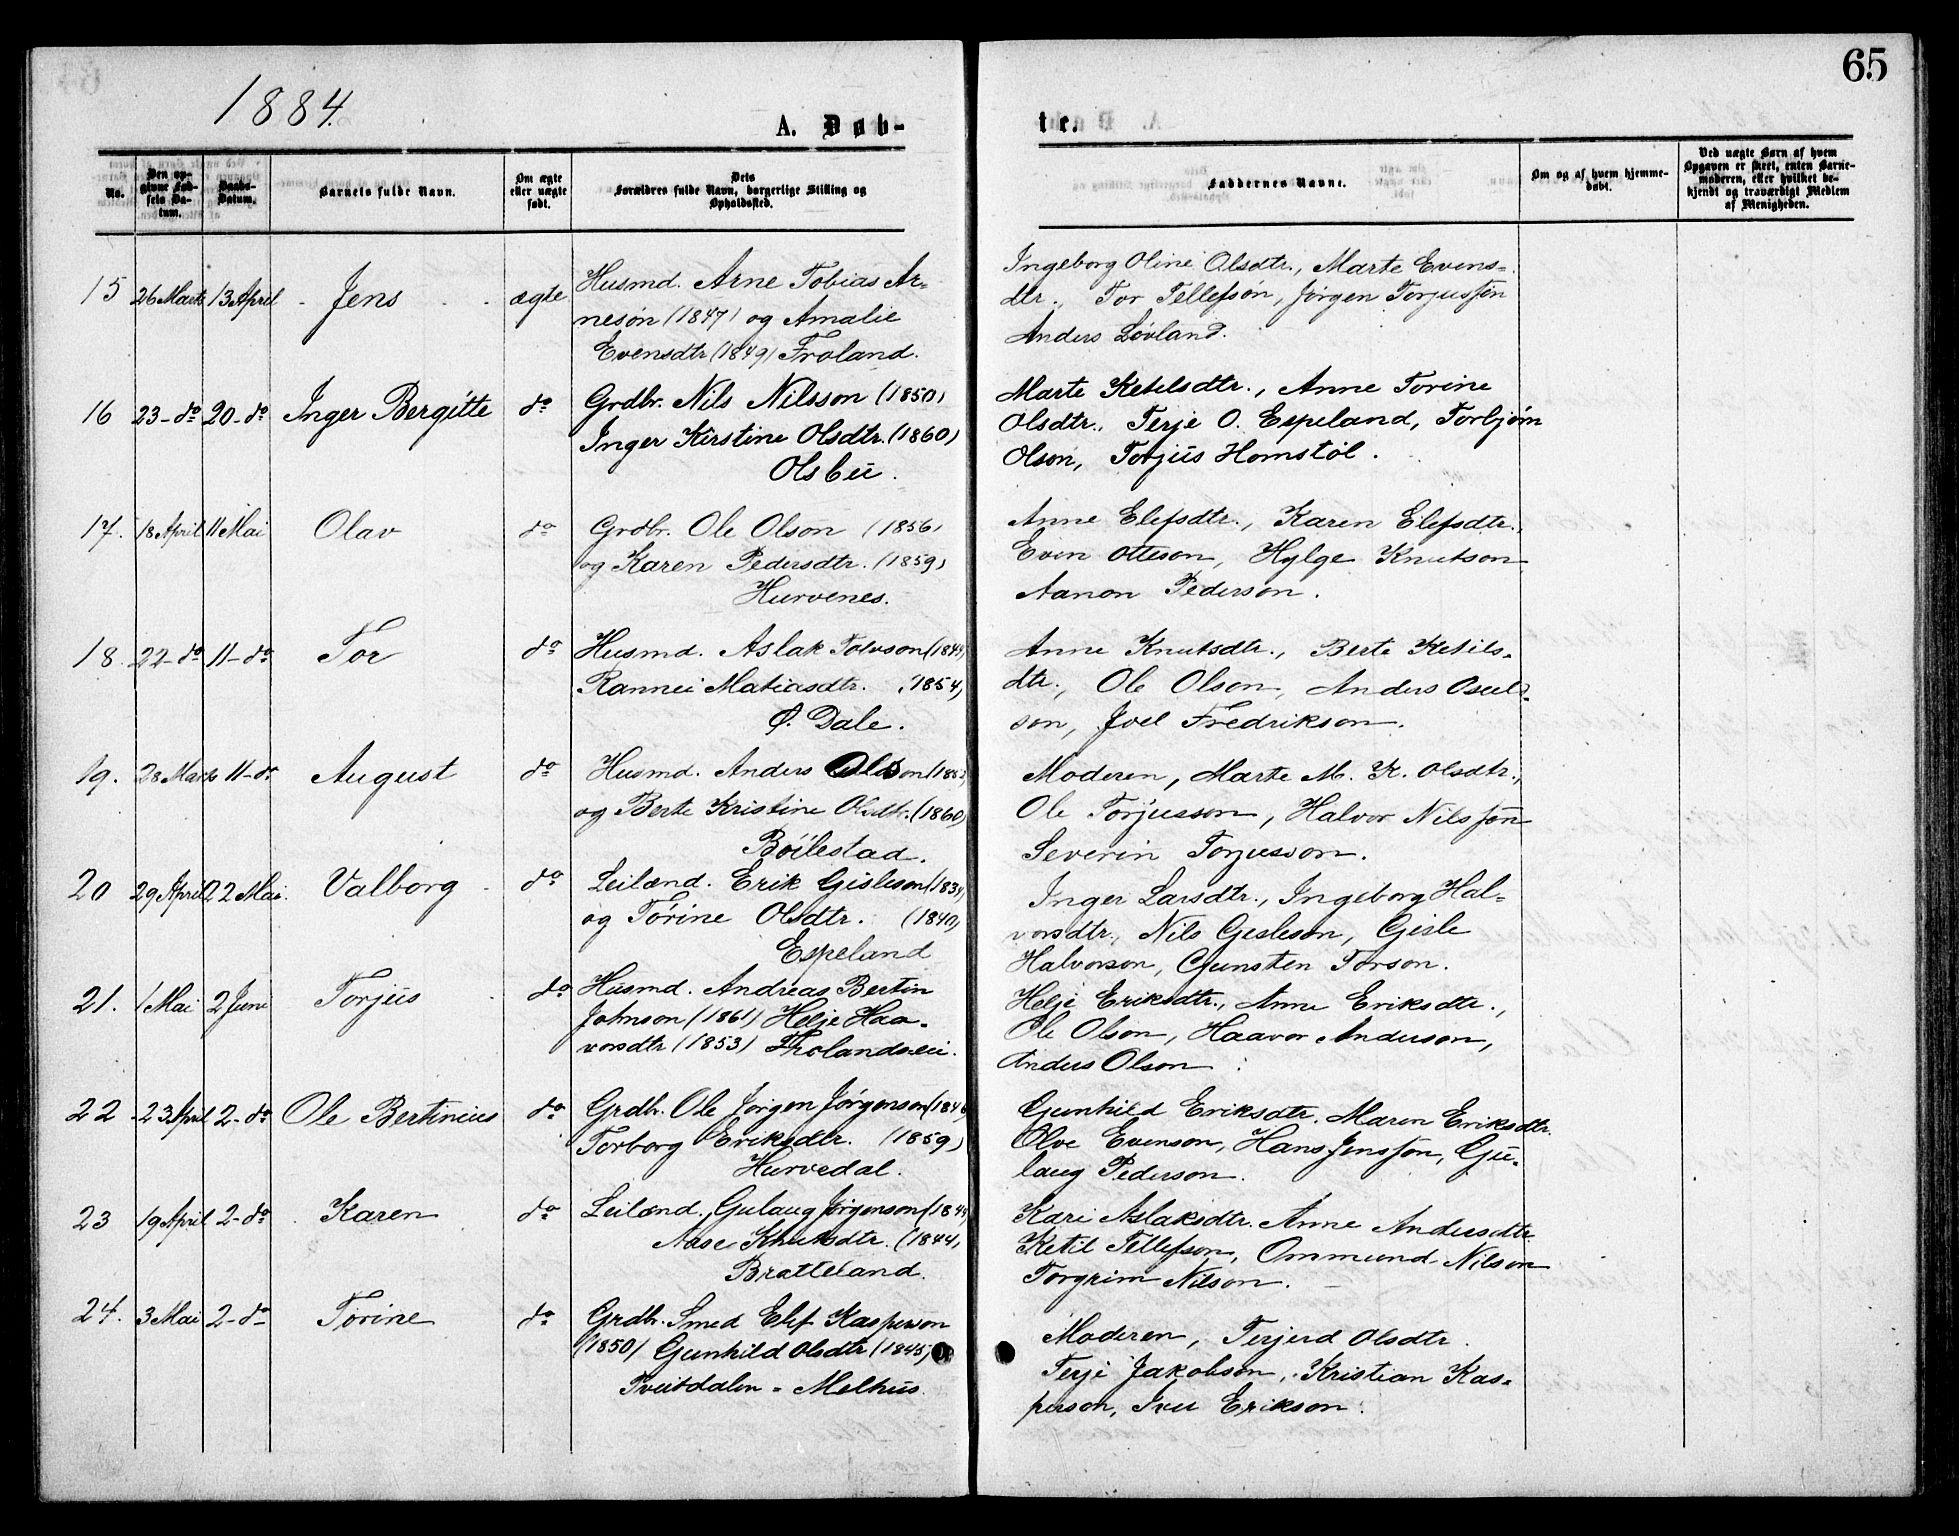 65
1884.
A. Døb-
te.
No.
Den op-
givne Fød-
sels Da-
tum.
Daabs-
Datum.
Barnets fulde Navn.
Om ægte
eller uægte
født.
Dets
Forældres fulde Navn, borgerlige Stilling og
Opholdssted.
Faddernes Navne.
Om og af hvem hjemme-
døbt.
Ved uægte Børn af hvem
Opgaven er skeet, enten Barne-
moderen, eller hvilket be-
kjendt og troværdigt Medlem
af Menigheden.
15 26 Marts 13 April Jens ægte
Husmd. Arne Tobias Ar-
nesøn (1847) og Amalie
Evensdtr (1849) Froland.
Ingeborg Oline Olsdtr., Marte Evens-
dtr., Tor Tellefsøn, Jørgen Torjussøn
Anders Løvland.
16 23-do 20-do Inger Bergitte do
Grdbr. Nils Nilsson (1850)
Inger Kirstine Olsdtr. (1860)
Olsbu.
Marte Ketelsdtr., Anne Torine
Olsdtr., Terje O. Espeland, Torbjørn
Olson, Torjus Homstøl.
17. 18 April 11 Mai Olav do
Grdbr. Ole Olson (1856)
og Karen Pedersdtr. (1859)
Hurvenes.
Anne Elefsdtr., Karen Elefsdtr.,
Even Otteson, Hylge Knutson
Aanon Pederson.
18. 22-do 11-do Tor do
Husmd. Aslak Tolvson
Rannei Matiasdtr. (1854)
Ø. Dale.
Anne Knutsdtr., Berte Ketils-
dtr., Ole Olson, Anders Osuld-
son, Joel Fredrikson.
19. 28 Marts 11-do August do
Husmd. Anders Olsson
og Berte Kristine Olsdtr. (1860)
Bøilestad.
Moderen, Marte M. K. Olsdtr.,
Ole Torjusson, Halvor Nilssøn
Severin Torjusson.
20 29 April 22 Mai. Valborg do
Leilænd. Erik Gisleson (1834)
og Tørine Olsdtr. (1840)
Espeland
Inger Larsdtr., Ingeborg Hal-
vorsdtr., Nils Gisleson, Gisle
Halvorson, Gunsten Torson.
21. 1 Mai 2 Juni Torjus do
Husmd. Andreas Bertin
Johnson (1861) Helje Haa-
vorsdtr (1853) Frolandsei.
Helje Eriksdtr., Anne Eriksdtr.,
Ole Olson, Haavor Anderson,
Anders Olson
22 23 April 2-do Ole Bertinius do
Grdbr. Ole Jørgen Jørgenson
Torborg Eriksdtr. (1859)
Hurvedal.
Gunhild Eriksdtr. Maren Eriksdtr.
Olve Evenson, Hans Jenssøn, Gu-
laug Pederson.
23 19 April 2-do Karen do
Leilænd. Gulaug Jørgenson
Aase Knutsdtr. (1844)
Bratteland.
Kari Aslaksdtr. Anne Andersdtr.
Ketil Tellefson, Ommund Nilson
Torgrim Nilson.
24. 3 Mai 2-do Torine do
Grdbr. Smed Elef Kasperson
(1850) Gunhild Olsdtr (1845)
Tveitdalen - Melhus.
Moderen, Terjerd Olsdtr.
Terje Jakobson, Kristian Kas-
person, Iver Erikson.